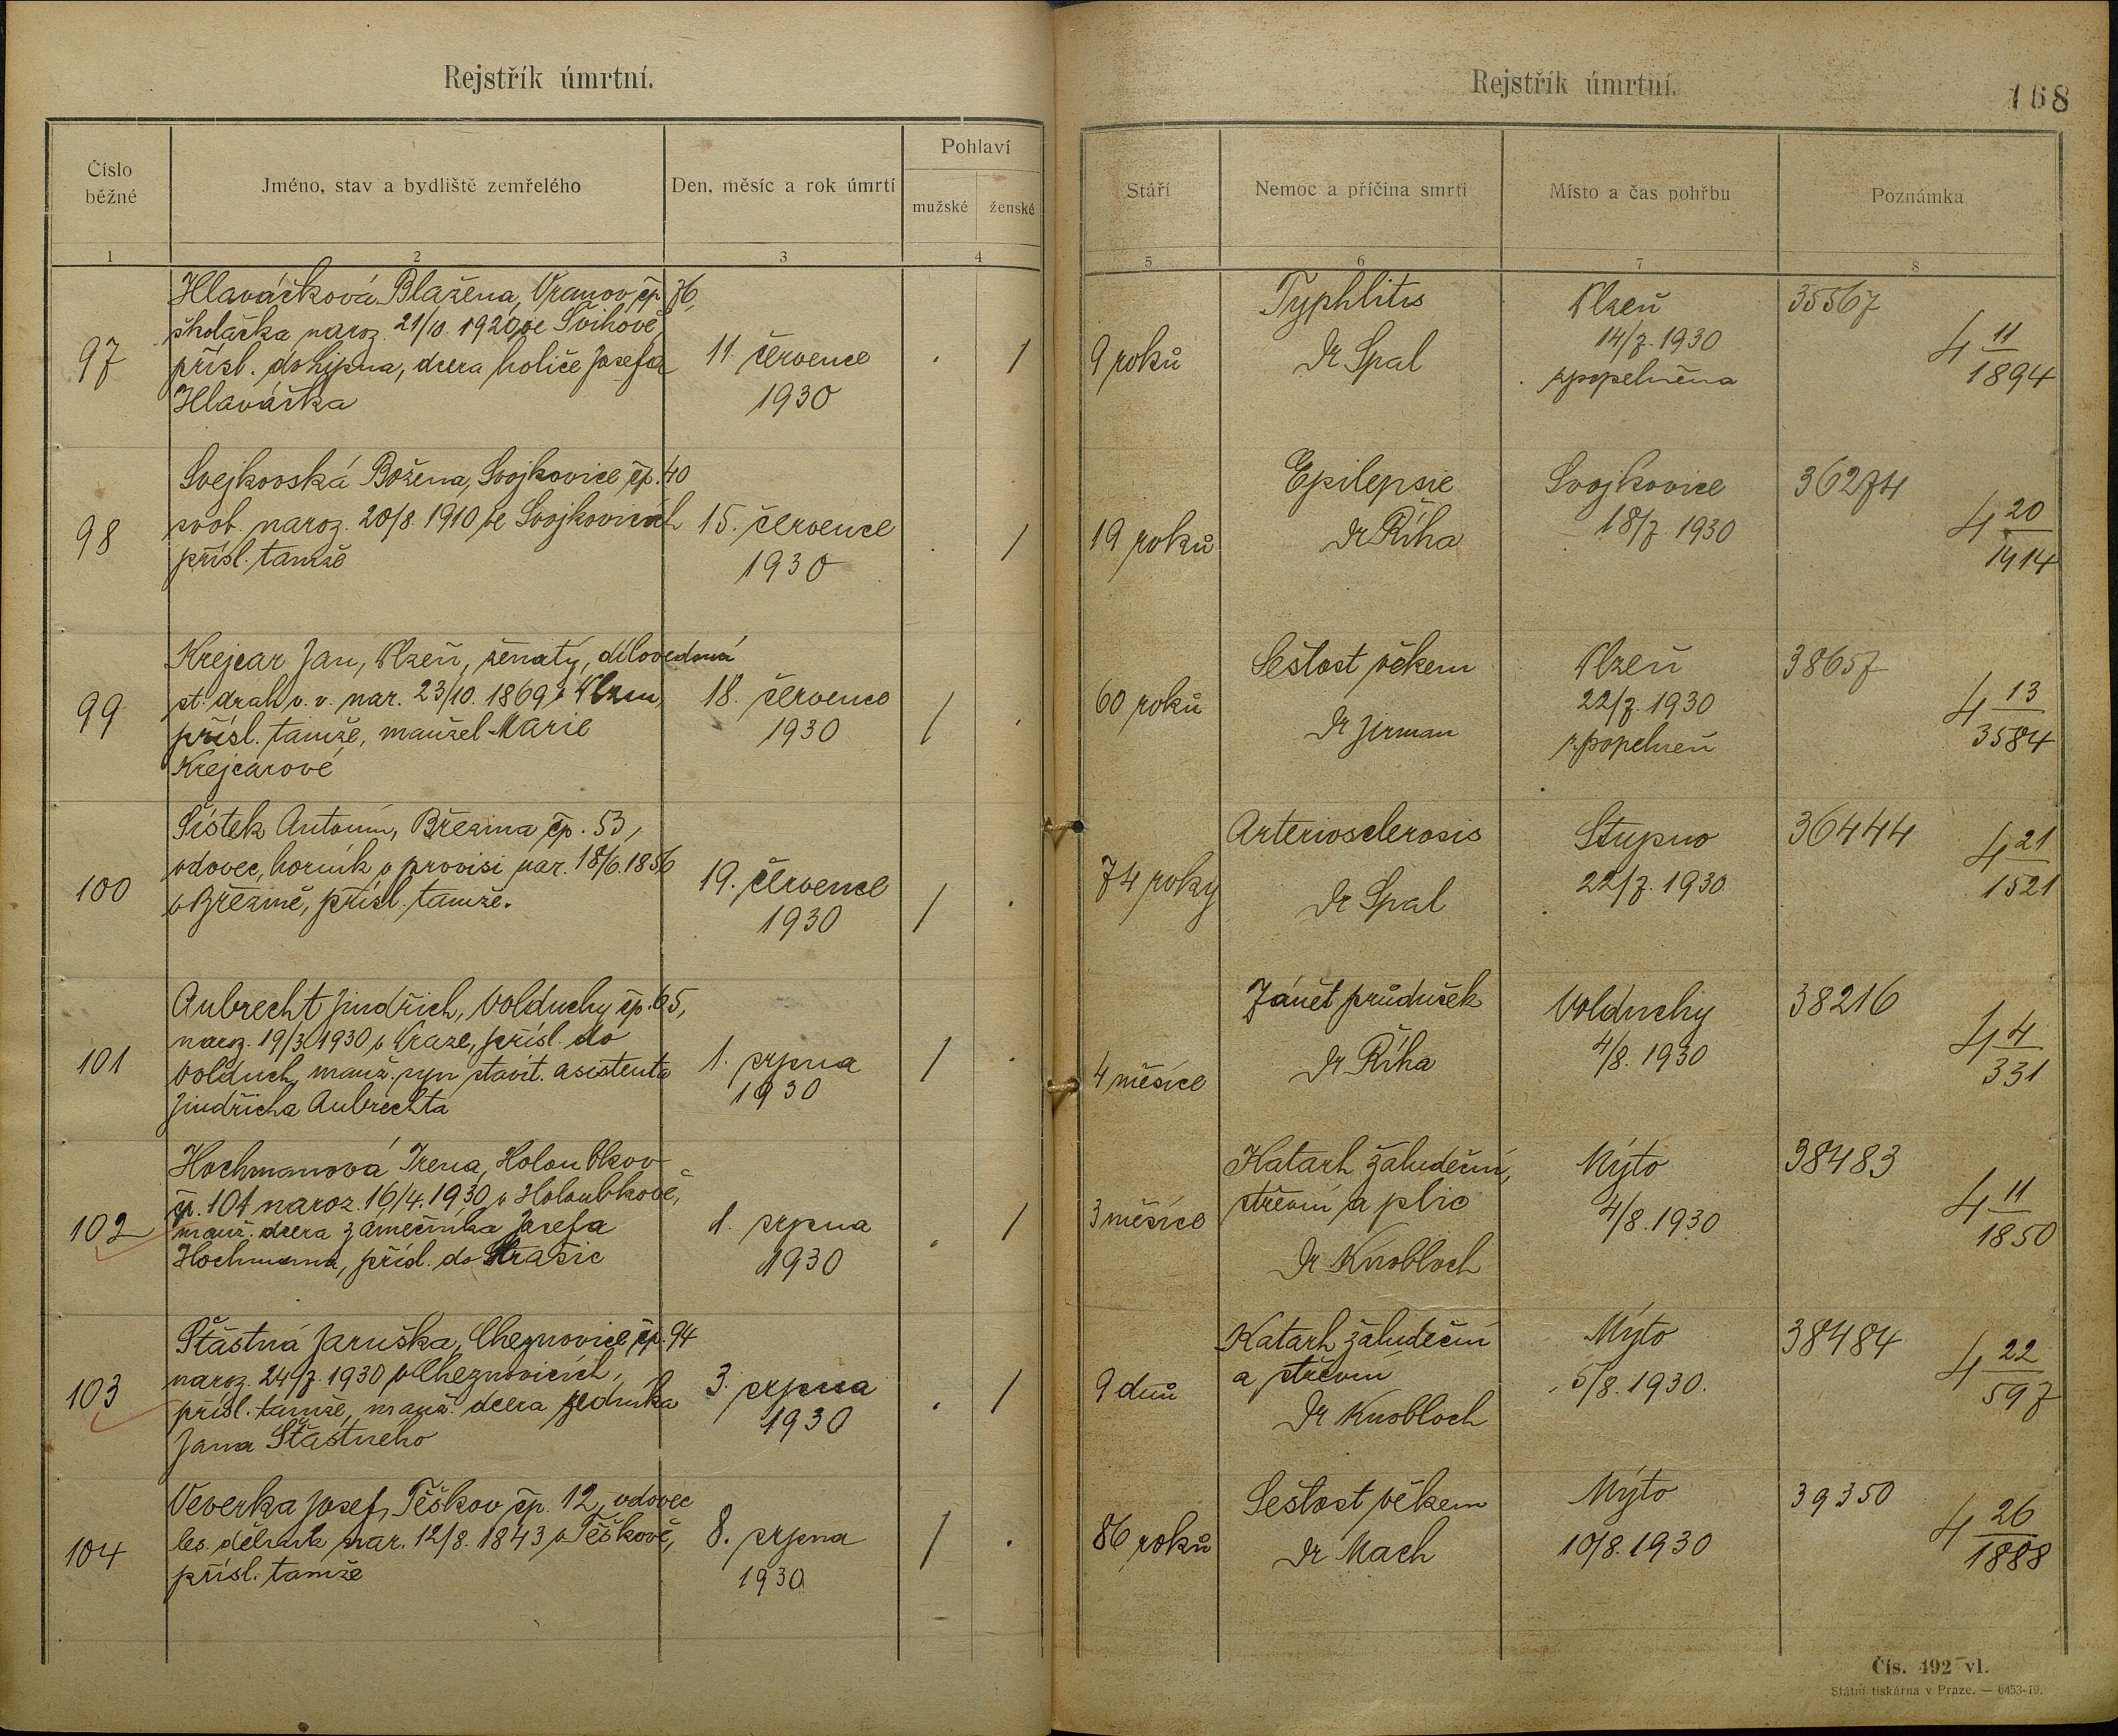 Rejstřík úmrtní.
Číslo běžné
Jméno, stav a bydliště zemřelého
Den, měsíc a rok úmrtí
Pohlaví
mužské ženské
1 2 3 4
97
Hlaváčková Blažena, Vranov čp. 76,
školačka naroz. 21/10. 1920 ve Švihově,
přísl. do, dcera holiče Josefa
Hlaváčka
11. července
1930
. /
98
Svejkovská Božena, Svojkovice čp. 40
svob. naroz. 20/8. 1910 ve Svojkovicích
přísl. tamže
15. července
1930
. /
99
Krejcar Jan, Plzeň, ženatý, dílovedoucí
st. drah v. v. nar. 23/10. 1869 v Plzni,
přísl. tamže, manžel Marie
Krejcarové
18. července
1930
/ .
100
Šístek Antonín, Březina čp. 53,
vdovec, horník v provisi nar. 18/6. 1856
v Březině, přísl. tamže.
19. července
1930
/ .
101
Aubrecht Jindřich, Volduchy čp. 65,
naroz. 19/3. 1930 v Praze, přísl. do
Volduch, manž. syn stavit. asistenta
Jindřicha Aubrechta
1. srpna
1930
/ .
102
Hochmanová Irena, Holoubkov
čp. 101 naroz. 16/4. 1930 v Holoubkově,
manž. dcera zámečníka Josefa
Hochmana, přísl. do Strašic
1. srpna
1930
. /
103
Šťastná Jaruška, Cheznovice čp. 94
naroz. 24/7. 1930 v Cheznovicích,
přísl. tamže, manž. dcera zedníka
Jana Šťastného
3. srpna
1930
. /
104
Veverka Josef, Těškov čp. 12, vdovec
les. dělník nar. 12/8. 1843 v Těškově,
přísl. tamže
8. srpna
1930
/ .
Rejstřík úmrtní.
168
Stáří
Nemoc a příčina smrti
Místo a čas pohřbu
Poznámka
5 6 7 8
9 roků
Typhlitis
Dr Spal
Plzeň
14/7. 1930
zpopelněna
35567
4 11/1894
19 roků
Epilepsie
Dr Říha
Svojkovice
18/7. 1930
36274
4 20/1414
60 roků
Sešlost věkem
Dr Jirman
Plzeň
22/7. 1930
zpopelněn
38657
4 13/3584
74 roky
Arteriosclerosis
Dr Spal
Stupno
22/7. 1930
36444
4 21/1521
4 měsíce
Zánět průdušek
Dr Říha
Volduchy
4/8. 1930
38216
4 4/331
3 měsíce
Katarh žaludeční,
střevní a plic
Dr Knobloch
Mýto
4/8. 1930
38483
4 11/1850
9 dnů
Katarh žaludeční
a střevní
Dr Knobloch
Mýto
5/8. 1930.
38484
4 22/597
86 roků
Sešlost věkem
Dr Mach
Mýto
10/8. 1930
39350
4 26/1888
Čís. 492 vl.
Státní tiskárna v Praze. — 6453-19.